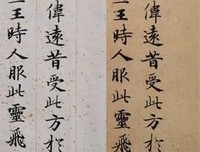 偉遠昔受此方於
二王時人服此靈飛
偉遠昔受此方於
二王時人服此靈飛